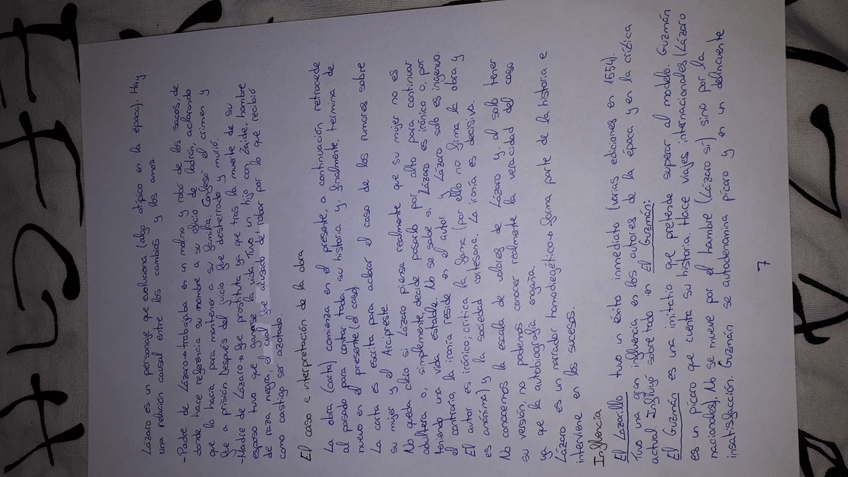 Lázaro es un personaje que evoluciona (algo atípico en la época). Hay
una relación causal entre los cambios y los amos.
- Padre de Lázaro → trabajaba en un molino y robó de los sacos, de
donde hace referencia su nombre a su oficio de ladrón, aclarando
que lo hacía para mantener a su familia. Confesó el crimen y
fue a prisión después del juicio fue desterrado y murió.
- Madre de Lázaro → fue prostituta ya que tras la muerte de su
esposo tuvo que ganarse la vida. Tuvo un hijo con Zaide, hombre
de raza negra, el cual fue acusado de robar por lo que recibió
como castigo ser azotado.
El caso e interpretación de la obra
La obra (carta) comienza en el presente, a continuación retrocede
al pasado para contar toda su historia y, finalmente, termina de
nuevo en el presente (el caso)
La carta es escrita para aclarar el caso de los rumores sobre
su mujer y el Arcipreste.
No queda claro si Lázaro piensa realmente que su mujer no es
adúltera o, simplemente decide pasarlo por alto para continuar
teniendo una vida estable. No se sabe si Lázaro es irónico o, por
el contrario, la ironía reside en el autor y Lázaro solo es ingenuo.
El autor es irónico, critica la fama (por ello no firma la obra y
es anónima) y la sociedad cortesana. La ironía es decisiva.
No conocemos la escala de valores de Lázaro y, al solo tener
su versión, no podemos conocer realmente la veracidad del caso
ya que la autobiografía engaña.
Lázaro es un narrador homodiegético → forma parte de la historia e
interviene en los sucesos.
Influencia
El Lazarillo tuvo un éxito inmediato (varias ediciones en 1554).
Tuvo una gran influencia en los autores de la época y en la crítica
actual. Influyó sobre todo en El Guzmán:
El Guzmán es una imitatio que pretende superar al modelo. Guzmán
es un pícaro que cuenta su historia. Hace viajes internacionales (Lázaro
nacionales). No se mueve por el hambre (Lázaro sí) sino por la
insatisfacción. Guzmán se autodenomina pícaro y es un delincuente
7